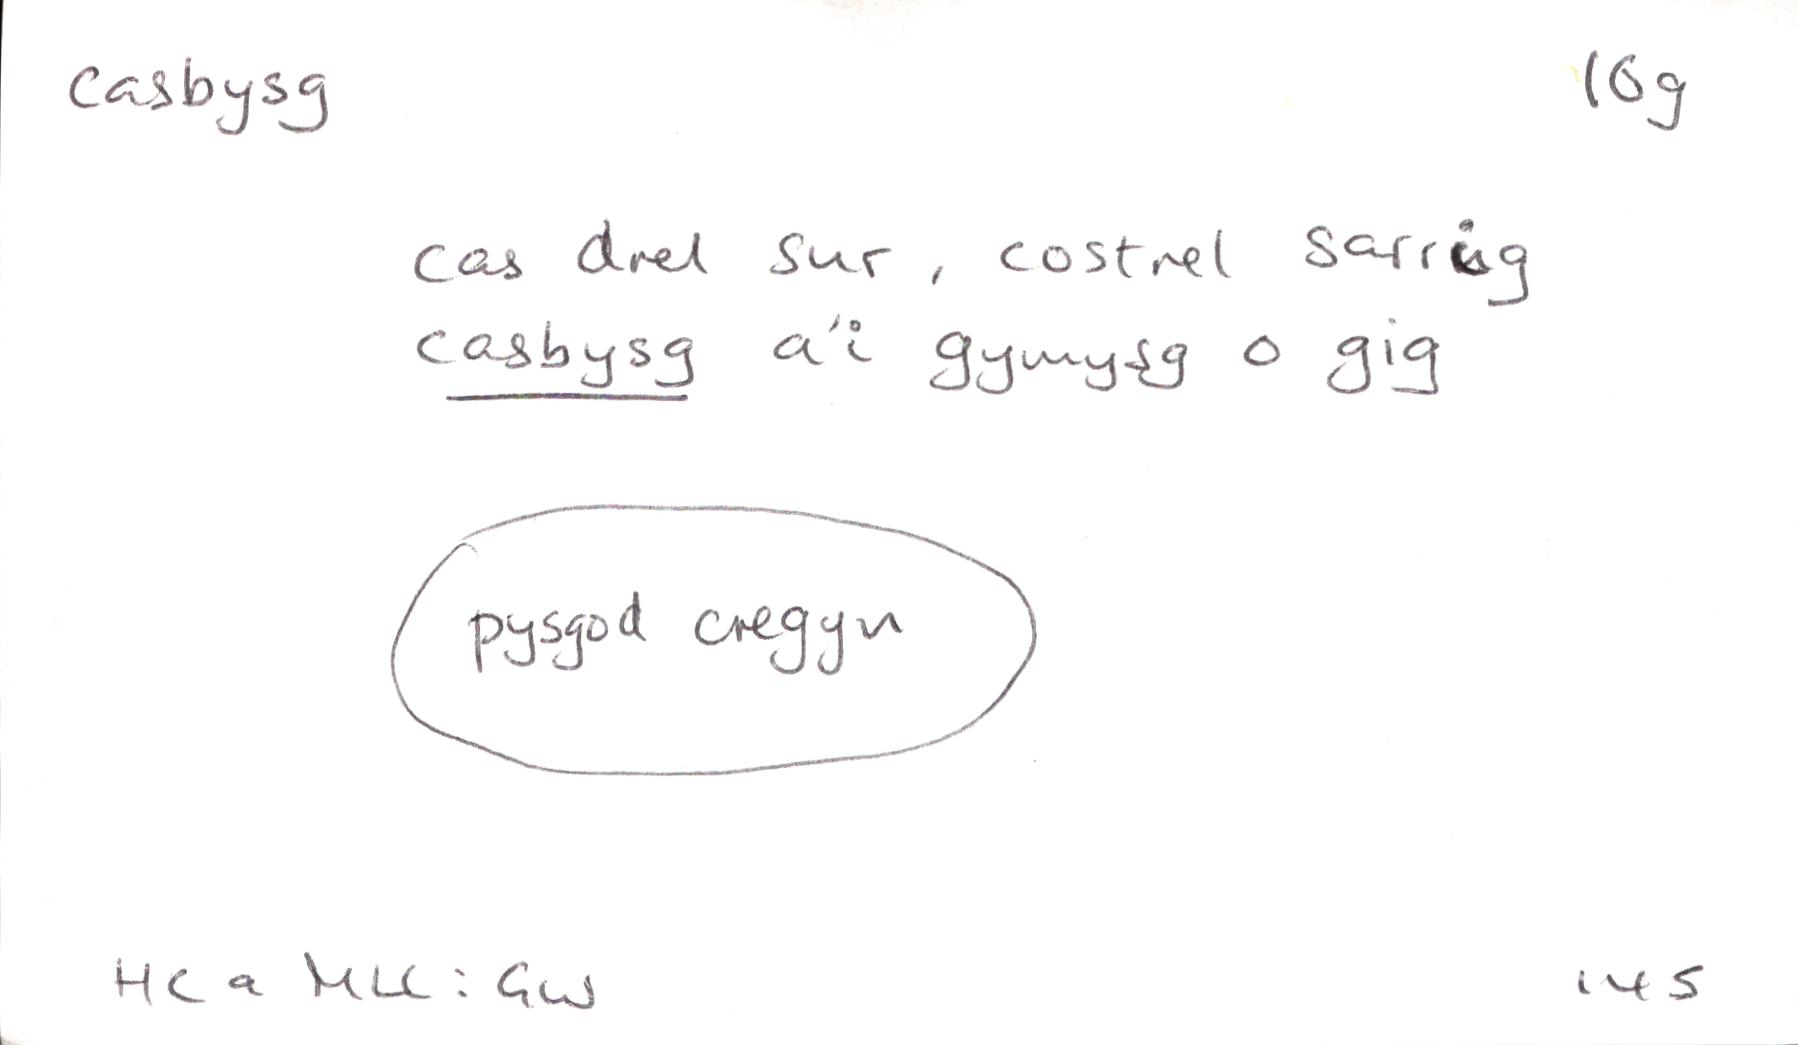 casbysg 16g
cas drel sur, costrel sarrig
casbysg a'i gymysg o gig
pysgod cregyn
HC a MLl: GW 145